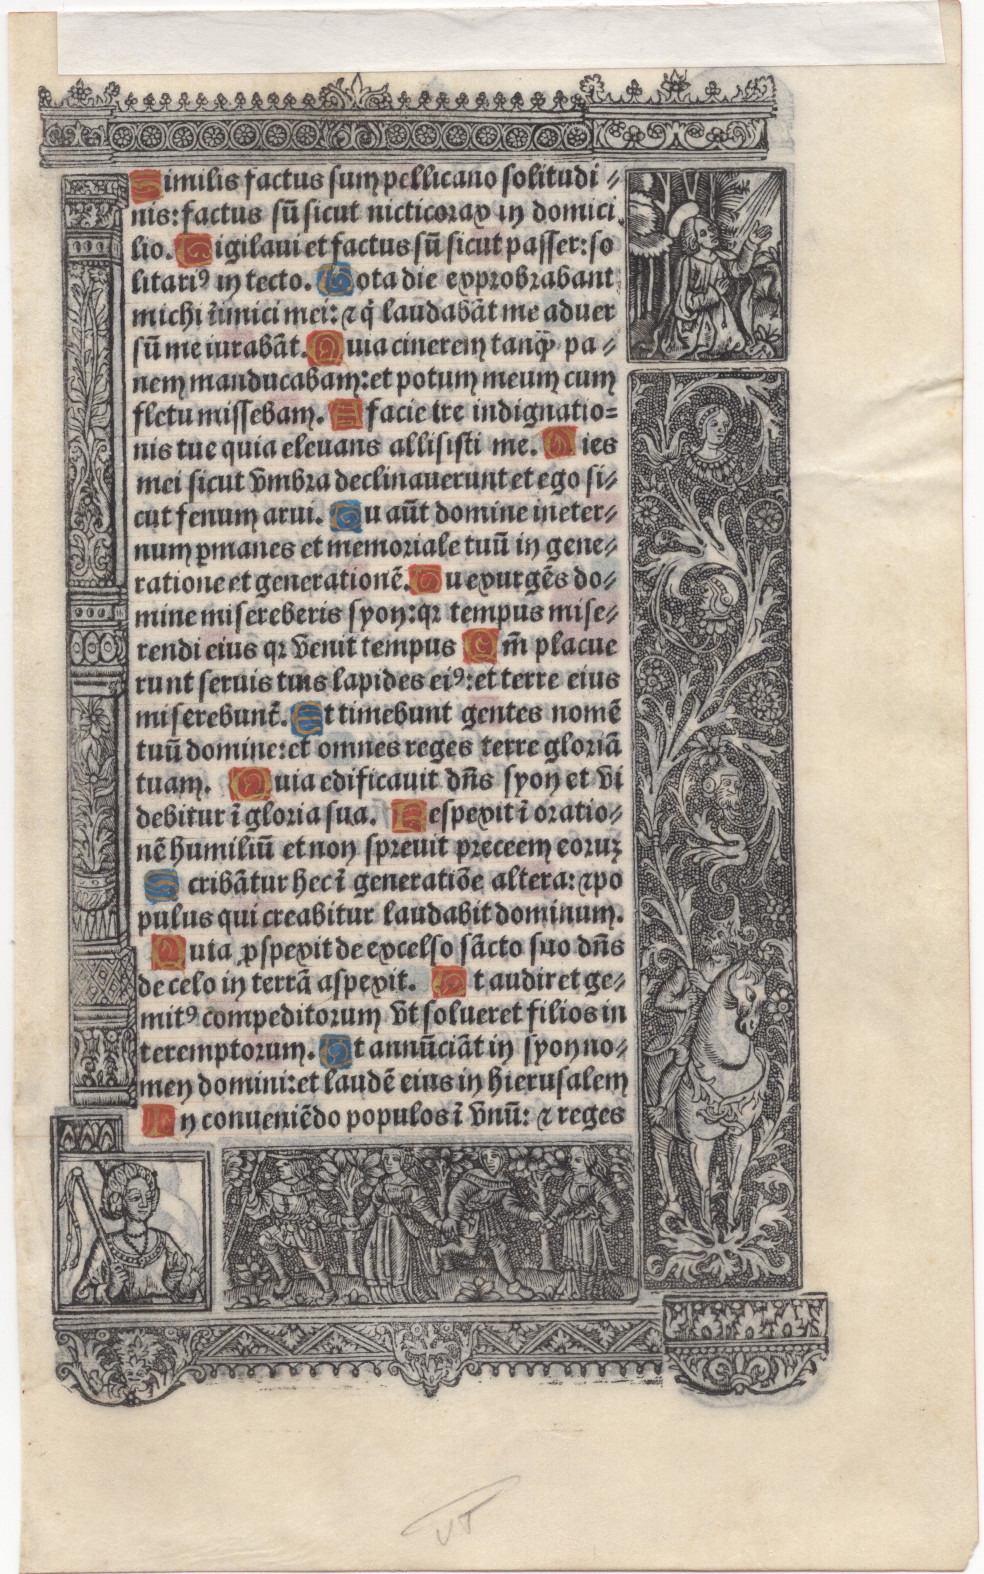 Similis factus sum pellicano solitudi⸗
nis: factus sū sicut nicticorax in domici
lio. Uigilaui et factus sū sicut passer: so
litariꝰ in tecto. Tota die exprobrabant
michi īimici mei: ⁊ q̄ laudabāt me aduer
sū me iurabāt. Quia cinerem tanq̄ pa⸗
nem manducabam: et potum meum cum
fletu missebam. A facie ire indignatio⸗
nis tue quia eleuans allisisti me. Dies
mei sicut vmbra declinauerunt et ego si⸗
cut fenum arui. Tu aūt domine in eter⸗
num ꝑmanes et memoriale tuū in gene⸗
ratione et generationē. Tu exurgēs do⸗
mine misereberis syon: qꝛ tempus mise⸗
rendi eius qꝛ venit tempus Qm̄ placue
runt seruis tuis lapides eiꝰ: et terre eius
miserebunt̄. Et timebunt gentes nomē
tuū domine: et omnes reges terre gloriā
tuam. Quia edificauit dn̄s syon et vi
debitur ī gloria sua. Respexit ī oratio⸗
nē humiliū et non spreuit preceem eoruꝫ
Scribātur hec ī generatiōe altera: ⁊ po
pulus qui creabitur laudabit dominum.
Quia ꝓspexit de excelso sācto suo dn̄s
de celo in terrā aspexit. Ut audiret ge⸗
mitꝰ compeditorum vt solueret filios in
teremptorum. Ut annūciāt in syon no⸗
men domini: et laudē eius in hierusalem
In conueniēdo populos ī vnū: ⁊ reges